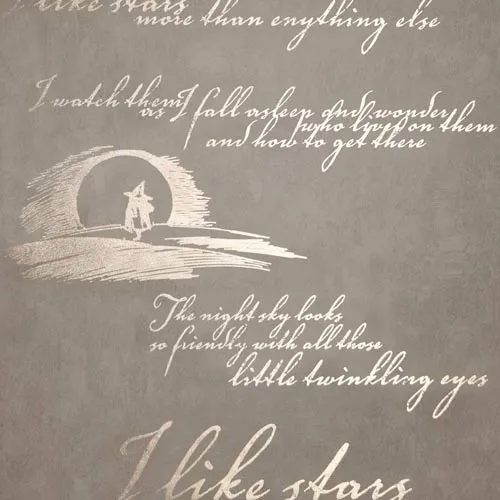 I like stars
more than enything else
I watch them
as I fall asleep and wonder
who lives on them
and how to get there
The night sky looks
so friendly with all those
little twinkling eyes
I like stars